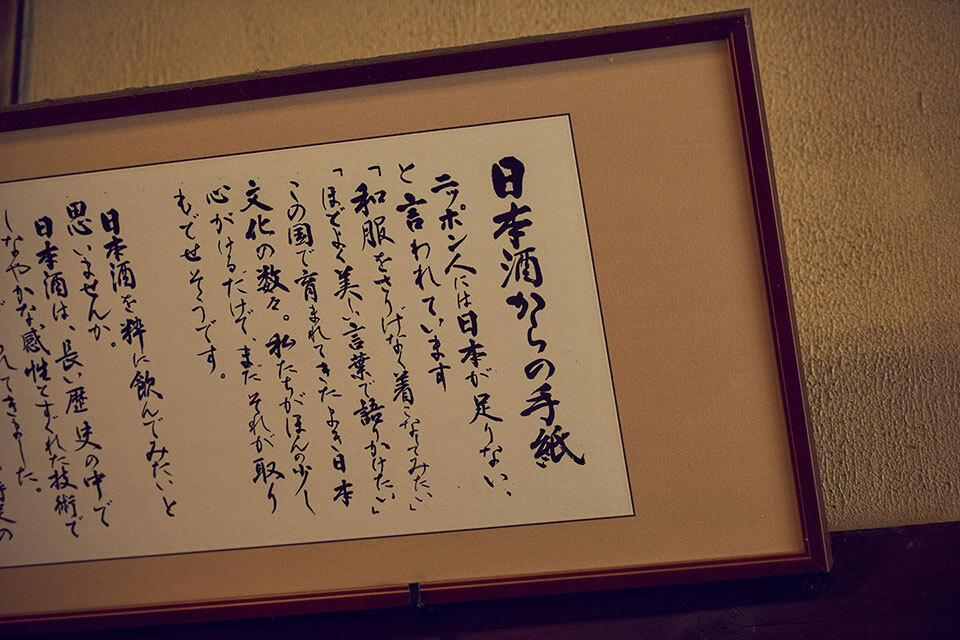 日本酒からの手紙
ニッポン人には日本が足りない、
と言われています
「和服をさりげなく着こなしてみたい」
「ほどよく美しい言葉で語りかけたい」
この国で育まれてきたよき日本
文化の数々。私たちがほんの少し
心がけるだけで、まだそれが取り
もどせそうです。
日本酒を粋に飲んでみたいと
思いませんか。
日本酒は、長い歴史の中で
しなやかな感性とすぐれた技術で
られてきました。